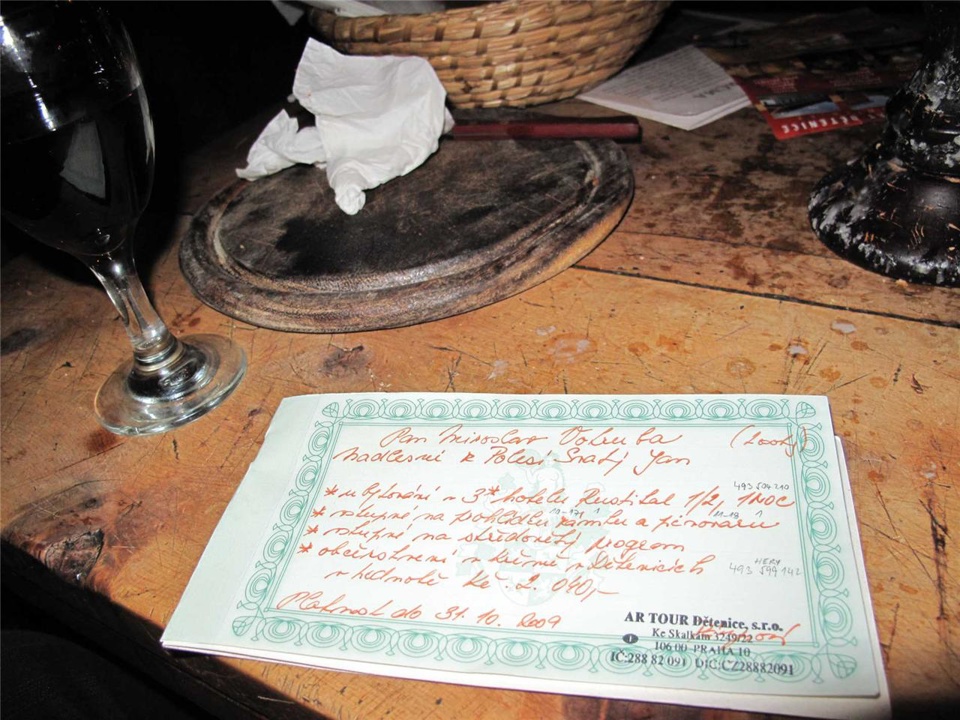 DĚTENICE
Pan Miroslav
Nadlesní z Polesí Svatý Jan
493 504 210
* ubytování v 3* hotelu Rustikal 1/2, 1 noc
* vstupné na prohlídku zámku a pivovaru
* vstupné na středověký program
* občerstvení v krčmě v Dětenicích
v hodnotě Kč 2. 040,-
493 599 142
Platnost do 31. 10. 2009
AR TOUR Dětenice, s.r.o.
Ke Skalkám 3249/22
106 00 PRAHA 10
IČ:288 82 091 DIČ:CZ28882091